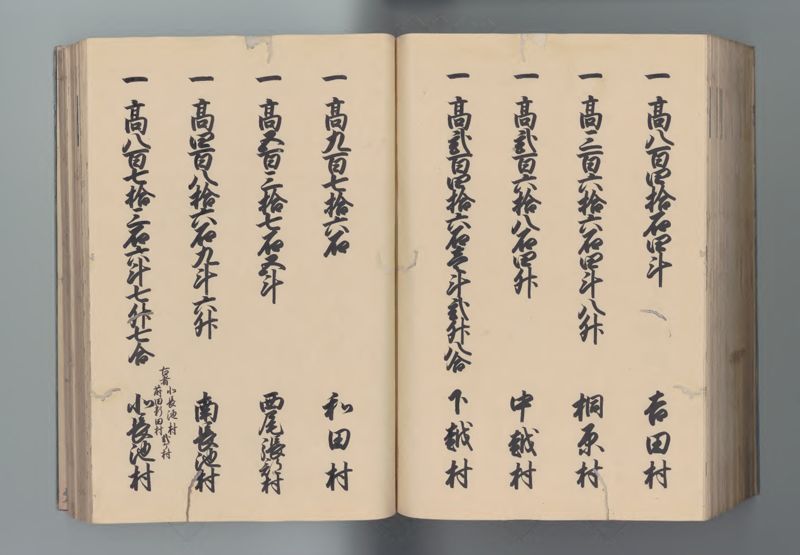 一 高八百四拾石四斗 吉田村
一 高三百六拾六石四斗八升 桐原村
一 高弐百六拾八石四升 中越村
一 高弐百四拾六石壱斗弐升八合 下越村
一 高九百七拾六石 和田村
一 高五百三拾七石五斗 西尾張部村
一 高四百八拾六石九斗六升 南長池村
一 高八百七拾三石六斗七升七合 小長池村
古者小長池村
前田新田村